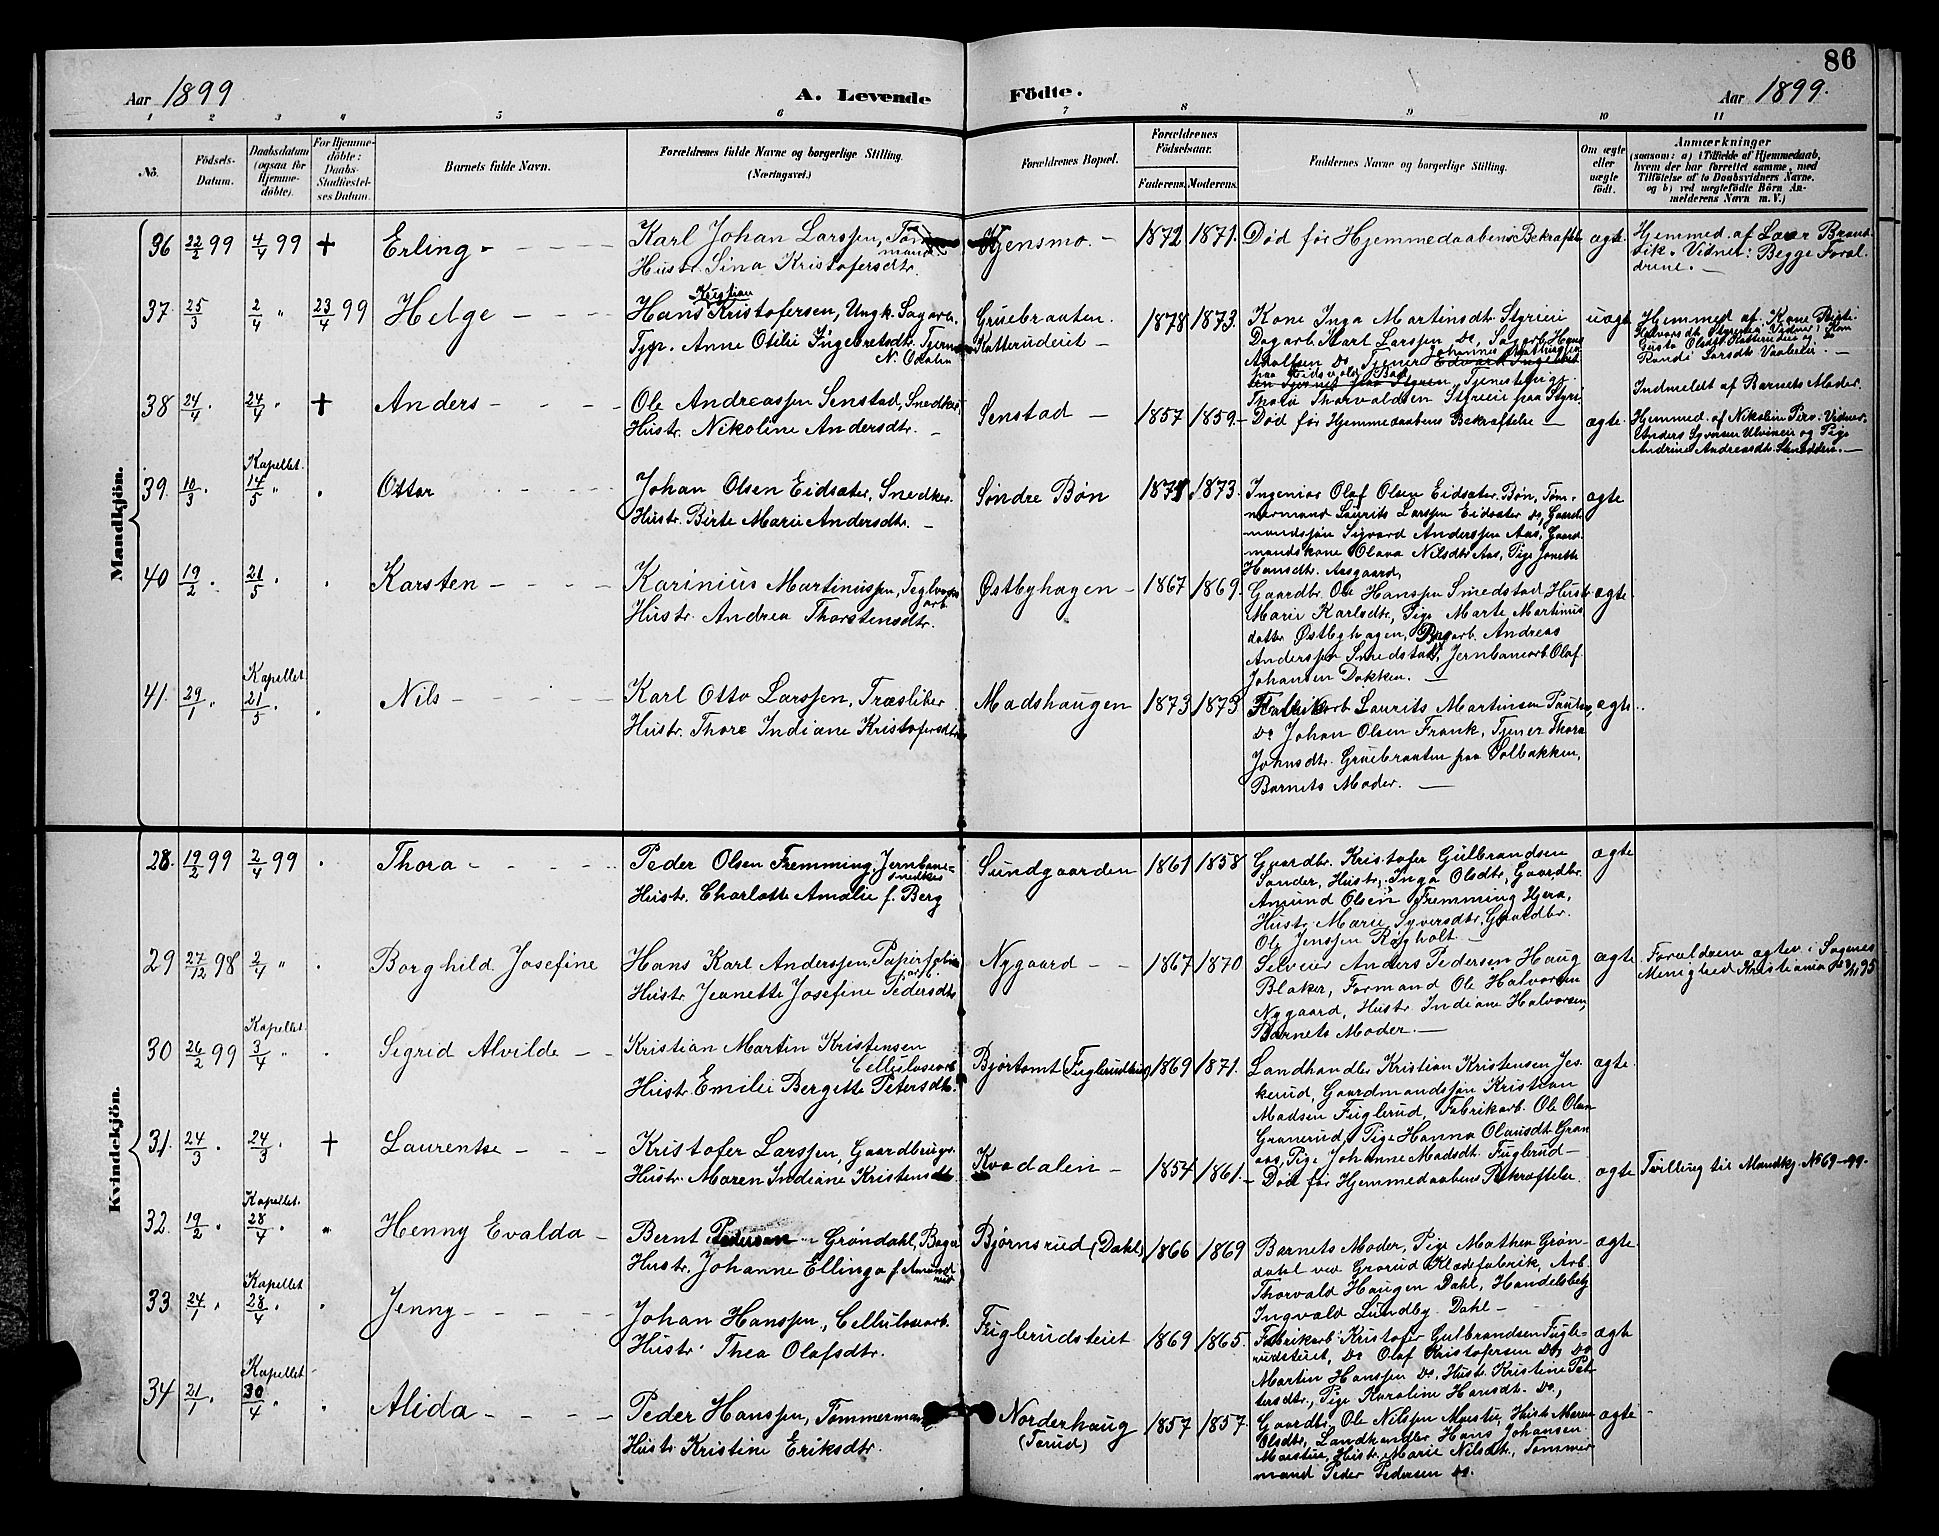 86
Aar 1899 A. Levende Födte. Aar 1899.
1 2 3 4 5 6 7 8 9 10 11
No.
Födsels-Datum.
Daabsdatum (ogsaa for Hjemmedöbte).
For Hjemmedöbte: Daabs-Stadfæstelses Datum.
Barnets fulde Navn.
Forældrenes fulde Navne og borgerlige Stilling. (Næringsvei.)
Forældrenes Bopæl.
Forældrenes Födselsaar.
Faderens. Moderens.
Faddernes Navne og borgerlige Stilling.
Om ægte eller uægte födt.
Anmærkninger
(saasom: a) i Tilfælde af Hjemmedaab,
hvem der har forrettet samme, med
Tilföielse af to Daabsvidners Navne,
og b) ved uægtefödte Börn An-
melderens Navn m. V.)
Mandkjön.
36 22/2 99 4/4 99 + Erling -
Karl Johan Larssen, Tömmermand
Hustr. Sina Kristofersdtr.
Hjensmo. - 1872 1871.
Død før Hjemmedaabens Bekræftelse
ægte.
Hjemmed. af Lær Brand-
vik. Vidner: Begge Foræl-
drene. -
37. 25/3 2/4 " 23/4 99 Helge -
Hans Kristian Kristofersen, Ungk. Sagarb.
Tjp. Anne Otilie Ingebretsdtr.
N. Odalen
Gruebraaten.
Katterudeiet - 1878 1873.
Kone Inga Martinsdt. Styrieie
Dagarb. Karl Larssen Do, Sagarb. Hans
Adolfsen Do, Tjener Johannes
paa Eidsvold Bad
Thora Thorvaldsen Styrieie paa Styri.
uægte
Hjemmed. af Kone Birte
Gusta Olsdt. Katterudeie og
Randi Larsdt. -
Indmeldt af Barnets Moder.
38 24/4. 24/4 " + Anders -
Ole Andreassen Senstad, Snedker,
Hustr. Nikoline Andersdtr. -
Senstad - 1857 1859.
- Død før Hjemmedaabens Bekræftelse -
ægte.
Hjemmed. af Nikoline Vidner.
Anders Syversen Ulvineie og Pige
Andrine Andreasdt. -
39. 10/3. Kapellet. 14/5 " Ottar
Johan Olsen Eidsater, Snedker
Hustr. Birte Marie Andersdtr. -
Søndre Bøn 1871 1873.
Ingeniør Olaf Olsen Eidsater Bøn, Tøm-
mermand Laurits Larssen Eidsater do, Gaard-
mandssøn Sigvard Anderssen Aas, Gaard-
mandskone Olava Nilsdtr Aas, Pige Jonette
Hansdtr. Aasgaard,
ægte
40 19/2. 21/5 " Karsten -
Karinius Martinussen, Teglværksarb.
Hustr. Andrea Thorstensdtr.
Østbyhagen - 1867 1869.
Gaardbr. Ole Hanssen Smedstad, Hustr
Marie Karlsdtr, Pige Marte Martinus
datter Østbyhagen, Andreas
Anderssen Smedstad, Jernbanearb. Olaf
Johansen Dokken. -
ægte.
41. 29/1. Kapellet 21/5. Nils -
Karl Otto Larssen, Træsliber
Hustr. Thora Indiane Kristofersdtr
Madshaugen 1873 1873
Fabrikarb Laurits Martinsen
Do Johan Olsen Frank, Tjener Thora
Johnsdtr. Gruebraaten paa Solbakken,
Barnets Moder. -
ægte.
Kvindekjön.
28. 19/2 99 2/4 99 Thora -
Peder Olsen Fremming, Jernbane-
snedker
Hustr. Charlotte Amalie f. Berg
Sundgaarden 1861 1858
Gaardbr. Kristofer Gulbrandsen
Sander, Hustr. Inga Olsdtr, Gaardbr.
Amund Olsen Fremming Hjera,
Hustr. Marie Syversdtr, Gaardbr.
Ole Jenssen Røgholt -
ægte
29 27/12 98 2/4 " Borghild Josefine
Hans Karl Anderssen, Papirfabrikarb.
Hustr Jeanette Josefine Pedersdtr
Nygaard - - 1867 1870
Selveier Anders Pedersen Haug
Blaker, Formand Ole Halvorsen
Nygaard, Hustr. Indiane Halvorsen,
Barnets Moder. -
ægte
Forældrene ægtev. i Sagenes
Menighed Kristiania 95
30 26/2 99 Kapellet. 3/4 " Sigrid Alvilde - -
Kristian Martin Kristensen
Cellulosearb
Hustr. Emilie Bergette Petersdtr.
Bjørtomt (Fuglerudeie) 1869 1871.
Landhandler Kristian Kristensen Jes-
kerud, Gaardmandssøn Kristian
Madsen Fuglerud, Fabrikarb. Ole Olsen
Granerud, Pige Hanna Olausdt. Gran
aas, Pige Johanne Madsdt. Fuglerud -
ægte.
31. 24/3. 24/3. + Laurentse -
Kristofer Larssen, Gaardbruger.
Hustr. Maren Indiane Kristensdtr
Kvadalen - 1854 1861.
- Død før Hjemmedaabens Bekræftelse
ægte
Tvilling til Mandkj. No 69-99.
32. 19/2. Kapellet. 28/4. " Henny Evalda -
Bernt Pedersen Grøndahl, Bager
Hustr. Johanne Ellinga f. Amundrud
Bjørnsrud (Dahl) 1866 1869
Barnets Moder, Pige Mathea Grøn-
dahl ved Grorud Klædefabrik, Arb.
Thorvald Haugen Dahl, Handelsbetj
Ingvald Lundby Dahl -
ægte.
33. 24/1. Kapellet 28/4. Jenny -
Johan Hanssen, Cellulosearb.
Hustr. Thea Olafsdtr.
Fuglerudsteiet 1869 1865.
Fabrikarb. Kristofer Gulbrandsen Fugle-
rudsteiet, Do Olaf Kristofersen Do, Do
Martin Hanssen Do, Hustr. Kristine Pet-
tersdtr., Pige Karoline Hansdt. Do,
ægte
34 21/1. Kapellet 30/4. Alida -
Peder Hanssen, Tømmermand
Hustr Kristine Eriksdtr.
Norderhaug
(Torud)
1857 1857.
Gaardbr. Ole Nilssen Mostue, Hustr. Maren
Olsdtr, Landhandler Hans Johansen
Mostue, Hustr. Marie Nilsdtr, Tømmer
mand Peder Pedersen do.
ægte